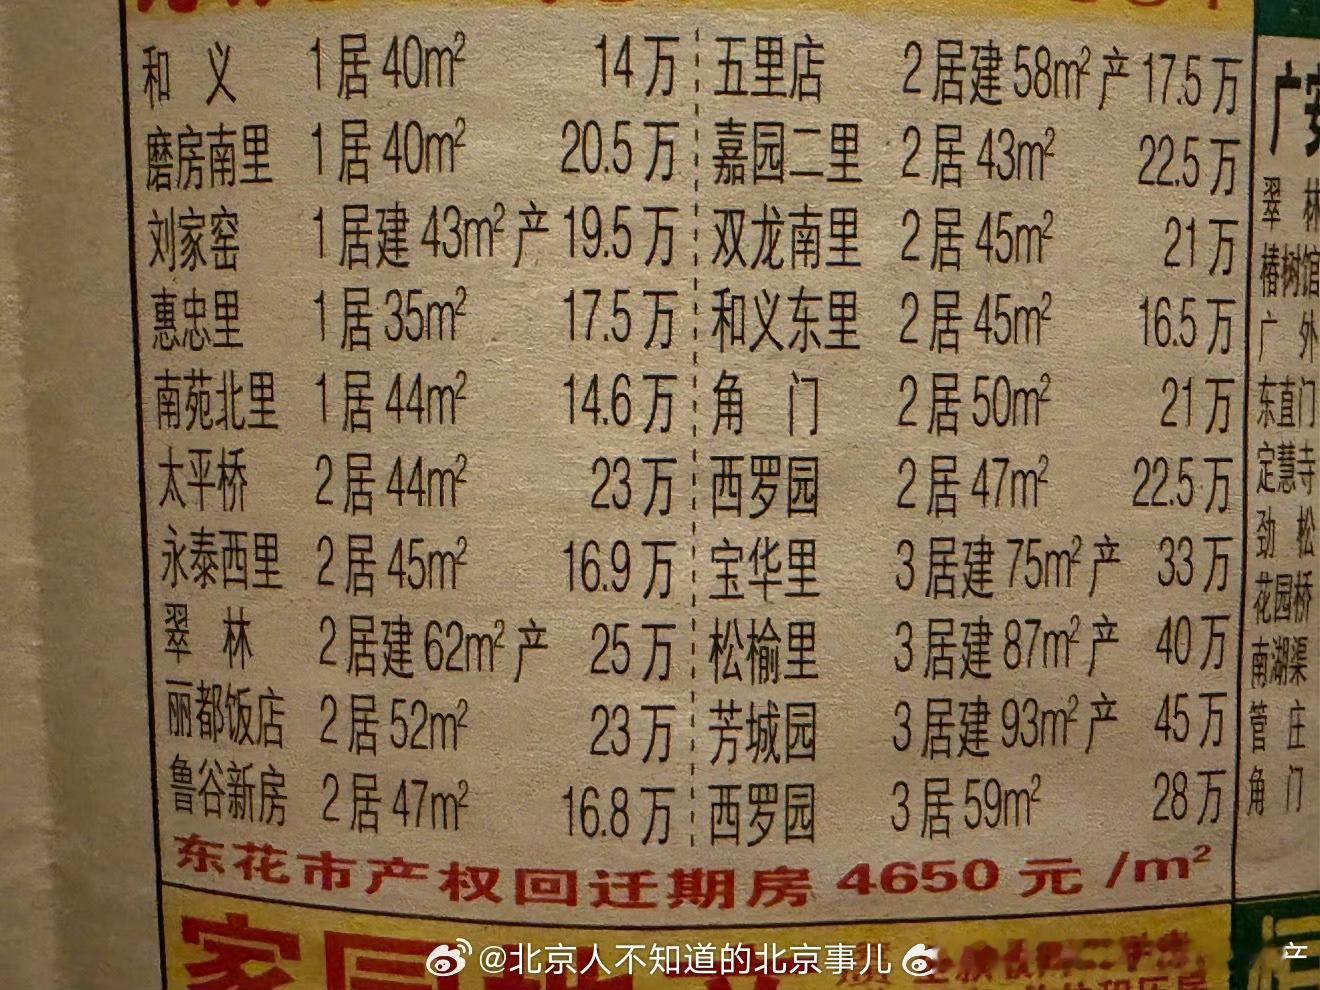 和 义 1居40m² 14万
磨房南里 1居40m² 20.5万
刘家窑 1居建43m²产 19.5万
惠忠里 1居35m² 17.5万
南苑北里 1居44m² 14.6万
太平桥 2居44m² 23万
永泰西里 2居45m² 16.9万
翠 林 2居建62m²产 25万
丽都饭店 2居52m² 23万
鲁谷新房 2居47m² 16.8万
五里店 2居建58m²产 17.5万
嘉园二里 2居43m² 22.5万
双龙南里 2居45m² 21万
和义东里 2居45m² 16.5万
角 门 2居50m² 21万
西罗园 2居47m² 22.5万
宝华里 3居建75m²产 33万
松榆里 3居建87m²产 40万
芳城园 3居建93m²产 45万
西罗园 3居59m² 28万
东花市产权回迁期房4650元/m²
广安
翠 林
椿树馆
广 外
东直门
定慧寺
劲 松
花园桥
南湖渠
管 庄
角 门
产
@北京人不知道的北京事儿